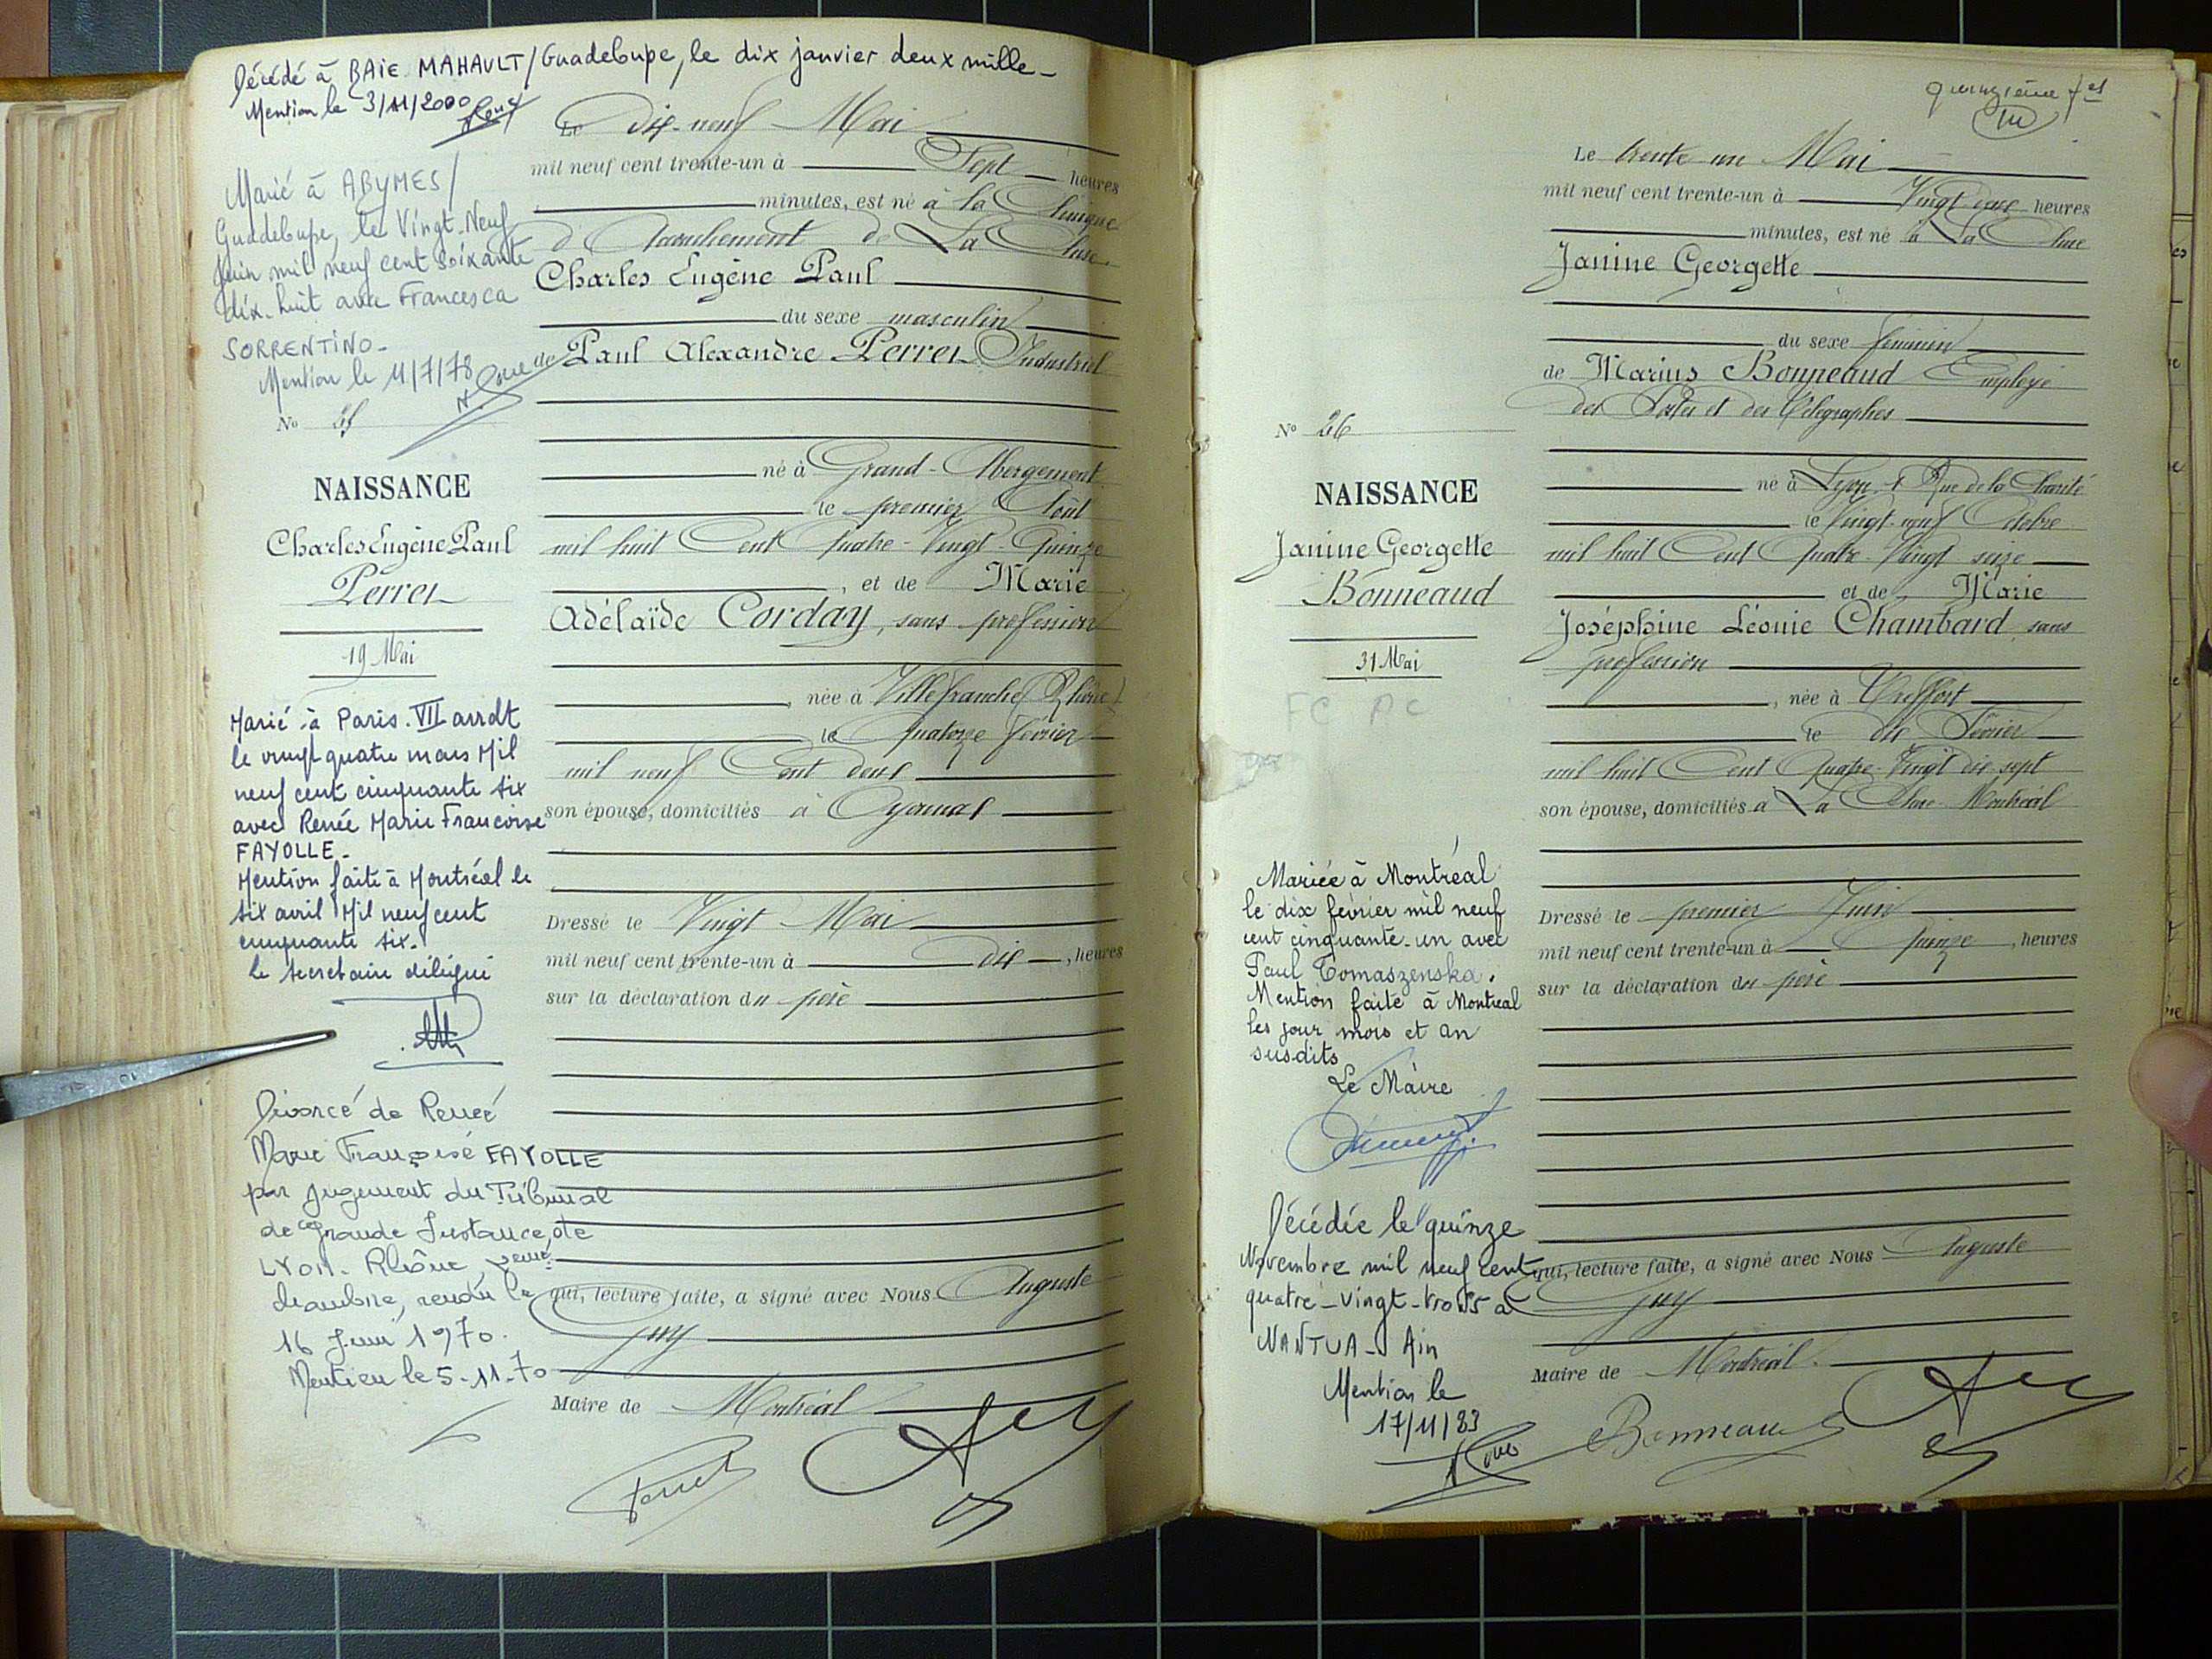 Décédé à BAIE MAHAULT/Guadeloupe, le dix janvier deux mille -
Mention le 3/11/2000
Marié à ABYMES/
Guadeloupe, le Vingt-Neuf
Juin mil neuf cent soixante
dix-huit avec Francesca
SORRENTINO -
Mention le 11/7/78
No 25
NAISSANCE
Charles Eugène Paul
Perret
19 Mai
Marié à Paris. VII arrdt
le vingt quatre mars Mil
neuf cent cinquante six
avec Renée Marie Françoise
FAYOLLE -
Mention faite à Montréal le
six avril Mil neuf cent
cinquante six.
le secretaire délégué
Divorcé de Renée
Marie Françoise FAYOLLE
par jugement du Tribunal
de Grande Instance de
LYON - Rhône
chambre, rendu le
16 Juin 1970.
Mention le 5-11-70
Le dix-neuf Mai
mil neuf cent trente-un à Sept heures
minutes, est né à la Clinique
d'Accouchement de La Cluse
Charles Eugène Paul
du sexe masculin
de Paul Alexandre Perret Industriel
né à Grand-Abergement
le premier Août
mil huit Cent Quatre-Vingt-Quinze
, et de Marie
Adélaïde Corday, sans profession
, née à Villefranche (Rhône)
le Quatorze février
mil neuf Cent deux
son épouse, domiciliés à Oyonnax
Dressé le Vingt Mai
mil neuf cent trente-un à dix , heures
sur la déclaration du père
qui, lecture faite, a signé avec Nous Auguste
Guy
Maire de Montréal
Perret
quinzième fet
No 26
NAISSANCE
Janine Georgette
Bonneaud
31 Mai
FC PC
Mariée à Montréal
le dix février mil neuf
cent cinquante-un avec
Paul Tomaszenska.
Mention faite à Montreal
les jour mois et an
susdits
Le Maire
Décédée le quinze
Novembre mil neuf cent
quatre-vingt-trois à
NANTUA - Ain
Mention le
17/11/83
Le trente un Mai
mil neuf cent trente-un à Vingt deux heures
minutes, est né à La Cluse
Janine Georgette
du sexe féminin
de Marius Bonneaud Employé
des Postes et des Télégraphes
né à Lyon, Rue de la Charité
le Vingt-neuf Octobre
mil huit Cent Quatre-Vingt seize
et de Marie
Joséphine Léonie Chambard, sans
profession
, née à Treffort
le dix Février
mil huit Cent Quatre-Vingt dix sept
son épouse, domiciliés à La Cluse-Montréal
Dressé le premier Juin
mil neuf cent trente-un à Quinze , heures
sur la déclaration du père
qui, lecture faite, a signé avec Nous Auguste
Guy
Maire de Montréal.
Bonneaud